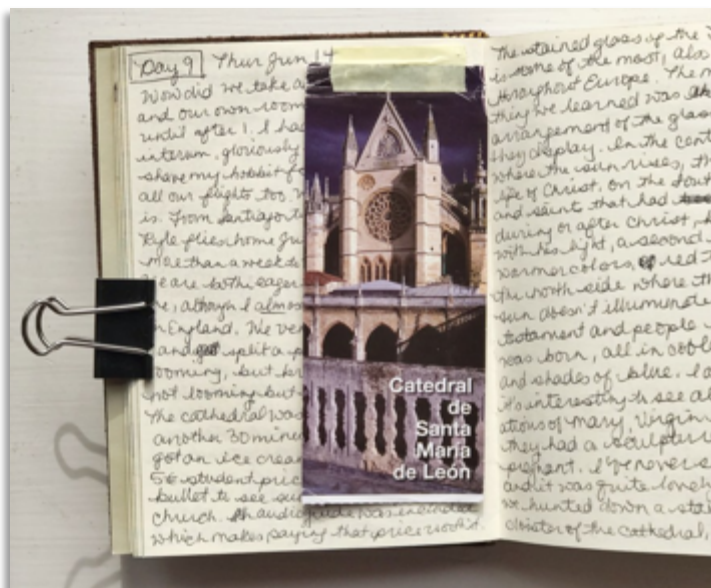 Day 9 Thur Jun 14
Wow did we take a
and our own room
until after 1. I ha
interum, gloriously
shave my hobbit fe
all our flights too. W
is. From Santiago to
Kyle flies home Ju
more than a week to
are both eager
he, although I almos
n England. We ve
and split a p
looming, but
not looming but
The cathedral was
another 30 mine
got an ice crea
5€ student pric
bullet to see our
church. An audioguide was included
which makes paying that price worth it.
Catedral
de
Santa
María
de León
The stained glass of the
is some of the most, also
throughout Europe. The m
thing we learned was the
arrangement of the glass
they display. In the cent
where the sun rises, th
life of Christ. On the sout
and saints that had
during or after Christ,
with his light, a second
warmer colors, red
the north side where th
sun doesn't illuminate
testament and people
was born, all in cool
and shades of blue. I a
it's interesting to see al
ations of Mary, Virgin
they had a sculpture
pregnant. I've never s
and it was quite lovely
we hunted down a sta
cloister of the cathedral,